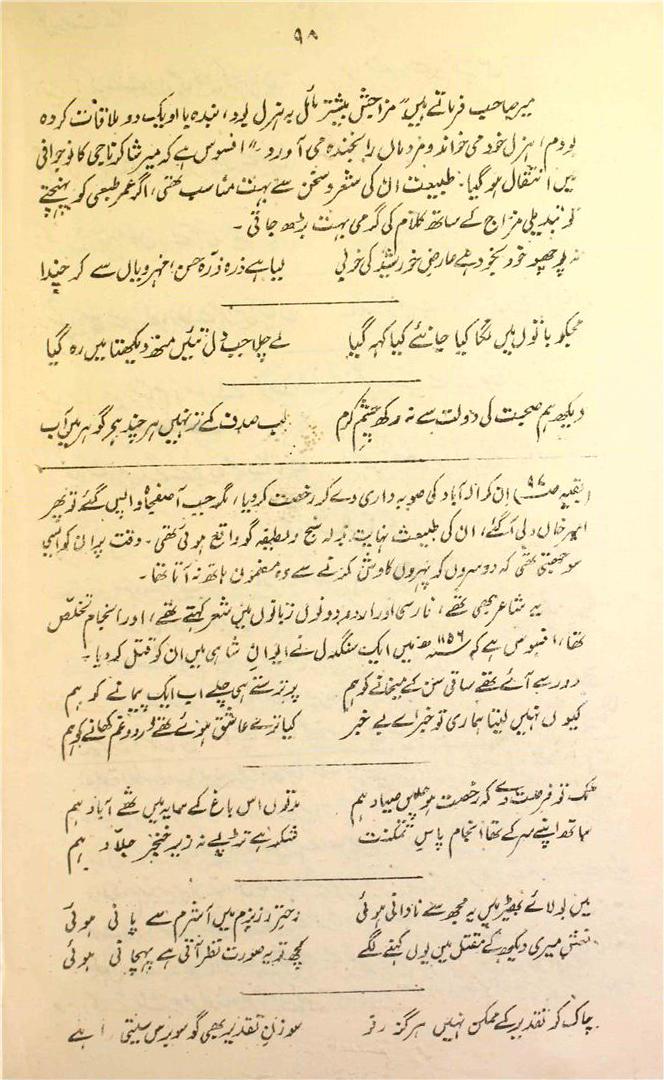 ۹۸
میر صاحب فرماتے ہیں "مزاجش بیشتر مائل بہ ہزل بود، بندہ با او یک دو ملاقات کردہ
بودم، ہزل خود می خواند و مردماں را بخندہ می آورد۔" افسوس ہے کہ میر شاکر ناجی کا نوجوانی
میں انتقال ہو گیا۔ طبیعت ان کی شعر و سخن سے بہت مناسب تھی، اگر عمر طبعی کو پہنچتے
تو تبدیلی مزاج کے ساتھ کلام کی گرمی بہت بڑھ جاتی۔
نہ پوچھو خود بخود ہے عارض خورشید کی خوبی لیا ہے ذرہ ذرہ حسن مہرویاں سے کر چندا
مجکو باتوں میں لگا کیا جانئے کیا کہہ گیا لے چلا جب دل تئیں منھ دیکھتا میں رہ گیا
دیکھ ہم صحبت کی دولت سے نہ رکھ چشم کرم لب صدف کے تر نہیں ہر چند ہے گوہر میں آب
(بقیہ صـ۹۷) ان کو الہ آباد کی صوبہ داری دے کر رخصت کر دیا، مگر جب آصفجاہ واپس گئے تو پھر
امیر خاں دلی آ گئے، ان کی طبیعت نہایت بذلہ سنج و لطیفہ گو واقع ہوئی تھی۔ وقت پر ان کو ایسی
سوجھتی تھی کہ دوسروں کو پہروں کاوش کرنے سے وہ مضمون ہاتھ نہ آتا تھا۔
یہ شاعر بھی تھے، فارسی اور اردو دونوں زبانوں میں شعر کہتے تھے، اور انجام تخلص
تھا، افسوس ہے کہ ۱۱۵۶ھ میں ایک سنگدل نے ایوان شاہی میں ان کو قتل کر دیا۔
دور سے آئے تھے ساقی سن کے میخانے کو ہم پر ترستے ہی چلے اب ایک پیمانے کو ہم
کیوں نہیں لیتا ہماری تو خبر اے بے خبر کیا ترے عاشق ہوئے تھے درد و غم کھانے کو ہم
ٹک تو فرصت دے کہ رخصت ہو لیں صیاد ہم مدتوں اس باغ کے سایہ میں تھے آباد ہم
ساتھ اپنے سر کے تھا انجام پاس تمکنت شکر ہے تڑپے نہ زیر خنجر جلّاد ہم
میں بولائے بھیڑ میں یہ مجھ سے نادانی ہوئی دختر رز بزم میں آ شرم سے پانی ہوئی
نعش میری دیکھ کے مقتل میں یوں کہنے لگے کچھ تو یہ صورت نظر آتی ہے پہچانی ہوئی
چاک کو تقدیر کے ممکن نہیں ہرگز رفو سوزن تقدیر بھی گو سو برس سیتی رہے